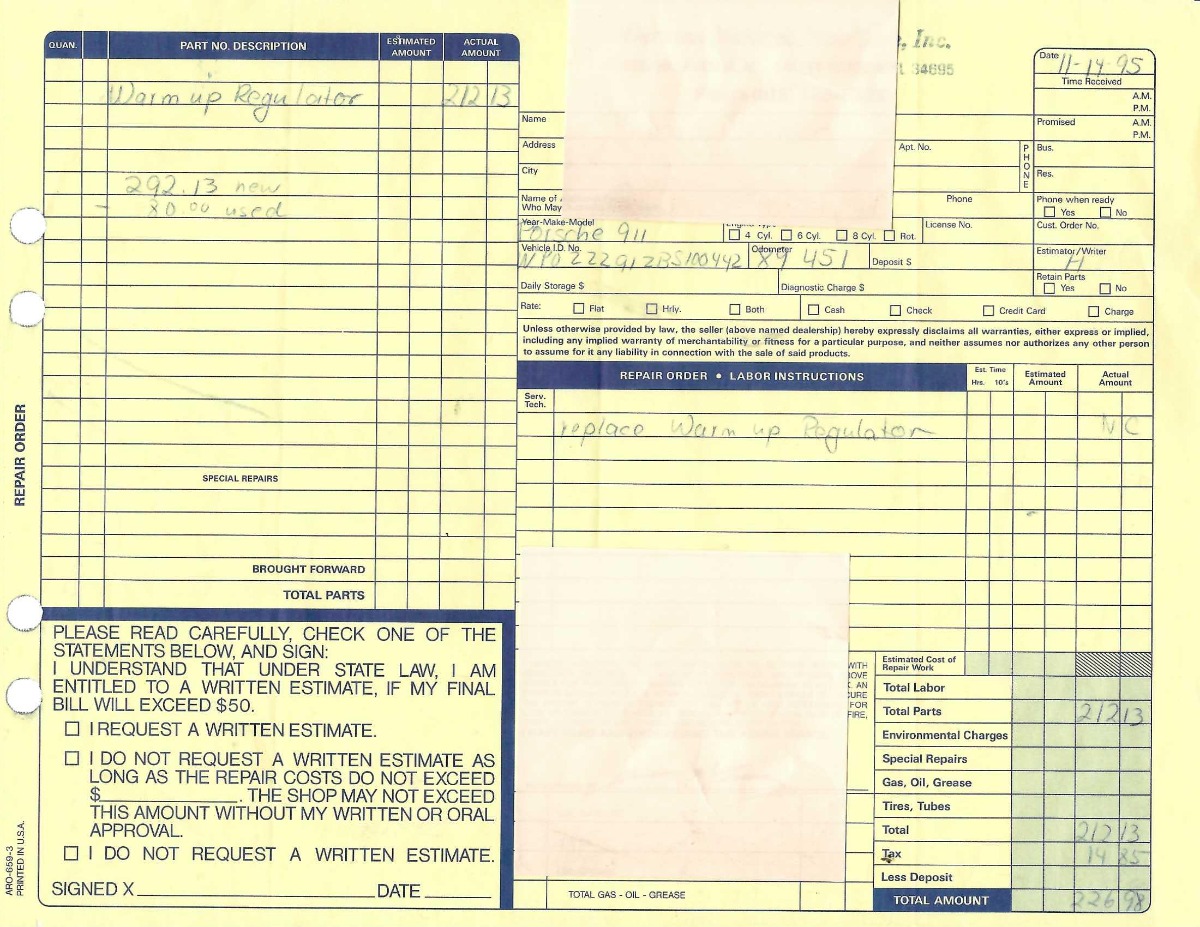 QUAN. PART NO. DESCRIPTION ESTIMATED AMOUNT ACTUAL AMOUNT
Warm up Regulator 212 13
292.13 new
- 80.00 used
SPECIAL REPAIRS
BROUGHT FORWARD
TOTAL PARTS
REPAIR ORDER
ARO-659-3
PRINTED IN U.S.A.
PLEASE READ CAREFULLY, CHECK ONE OF THE
STATEMENTS BELOW, AND SIGN:
I UNDERSTAND THAT UNDER STATE LAW, I AM
ENTITLED TO A WRITTEN ESTIMATE, IF MY FINAL
BILL WILL EXCEED $50.
I REQUEST A WRITTEN ESTIMATE.
I DO NOT REQUEST A WRITTEN ESTIMATE AS
LONG AS THE REPAIR COSTS DO NOT EXCEED
$____________. THE SHOP MAY NOT EXCEED
THIS AMOUNT WITHOUT MY WRITTEN OR ORAL
APPROVAL.
I DO NOT REQUEST A WRITTEN ESTIMATE.
SIGNED X____________ DATE ________
, Inc.
34695
Date 11-14-95
Time Received
A.M.
P.M.
Name Promised A.M.
P.M.
Address Apt. No. PHONE Bus.
City Res.
Name of
Who May Phone Phone when ready
Yes No
Year-Make-Model License No. Cust. Order No.
Porsche 911 4 Cyl. 6 Cyl. 8 Cyl. Rot.
Vehicle I.D. No. Odometer Estimator/Writer
89 451 Deposit $ H
Retain Parts
Daily Storage $ Diagnostic Charge $ Yes No
Rate: Flat Hrly. Both Cash Check Credit Card Charge
Unless otherwise provided by law, the seller (above named dealership) hereby expressly disclaims all warranties, either express or implied,
including any implied warranty of merchantability or fitness for a particular purpose, and neither assumes nor authorizes any other person
to assume for it any liability in connection with the sale of said products.
REPAIR ORDER • LABOR INSTRUCTIONS Est. Time Hrs. 10's Estimated Amount Actual Amount
Serv.
Tech.
replace Warm up Regulator N C
WITH
OVE
AN
CURE
FOR
FIRE,
Estimated Cost of
Repair Work
Total Labor
Total Parts 212 13
Environmental Charges
Special Repairs
Gas, Oil, Grease
Tires, Tubes
Total 212 13
Tax 14 85
Less Deposit
TOTAL GAS - OIL - GREASE
TOTAL AMOUNT 226 98